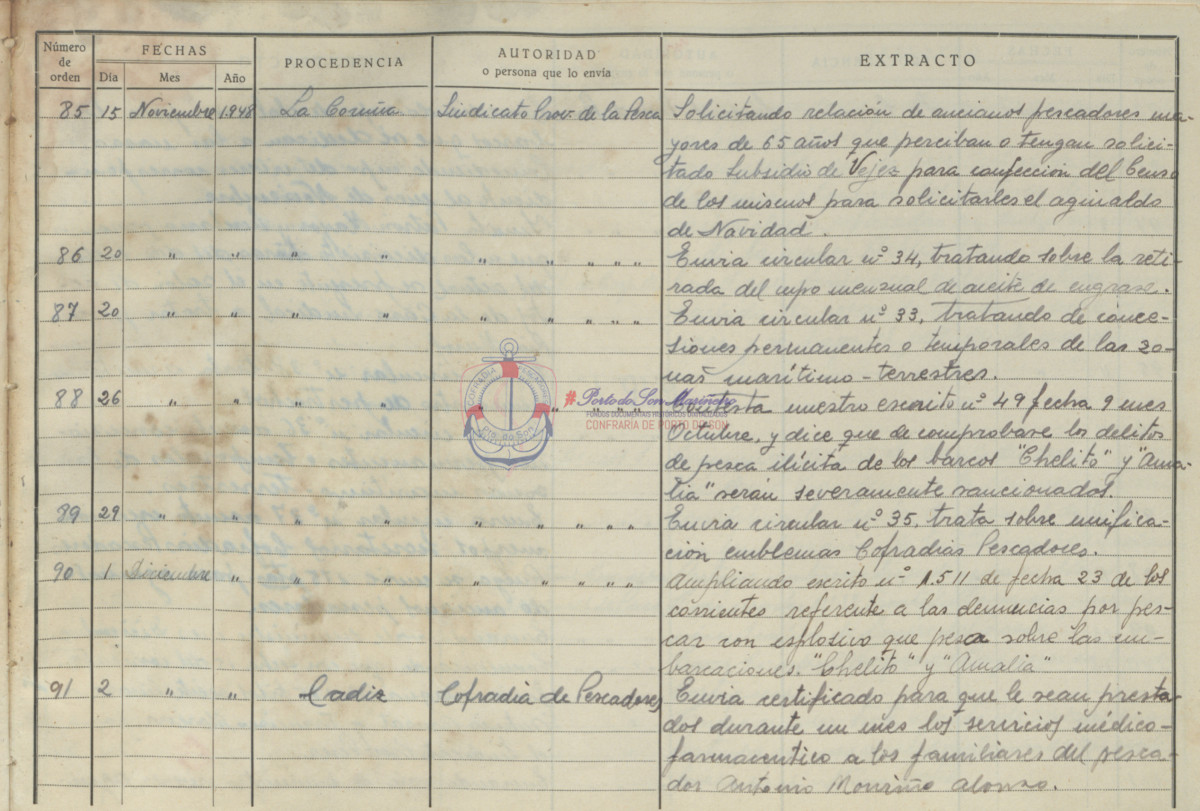 Número de orden FECHAS PROCEDENCIA AUTORIDAD o persona que lo envía EXTRACTO
Día Mes Año
85 15 Noviembre 1.948 La Coruña Sindicato Prov. de la Pesca Solicitando relación de ancianos pescadores ma-
yores de 65 años que perciban o tengan solici-
tado Subsidio de Vejez para confección del Censo
de los mismos para solicitarles el aguinaldo
de Navidad.
86 20 " " " " " " " " Envia circular nº 34, tratando sobre la reti-
rada del cupo mensual de aceite de engrase.
87 20 " " " " " " " " Envia circular nº 33, tratando de conce-
siones permanentes o temporales de las zo-
nas marítimo-terrestres.
88 26 " " " " " " " " Contesta nuestro escrito nº 49 fecha 9 mes
Octubre, y dice que de comprobarse los delitos
de pesca ilícita de los barcos "Chelito" y "Ama-
lia" serán severamente sancionados.
89 29 " " " " " " " " Envia circular nº 35, trata sobre unifica-
ción emblemas Cofradias Pescadores.
90 1 Diciembre " " " " " " " Ampliando escrito nº 1.511 de fecha 23 de los
corrientes referente a las denuncias por pes-
car con explosivo que pesca sobre las em-
barcaciones. "Chelito" y "Amalia"
91 2 " " Cadiz Cofradia de Pescadores Envia certificado para que le sean presta-
dos durante un mes los servicios médico-
farmaceutico a los familiares del pesca-
dor Antonio Alonso.
COFRADÍA PESCADORES
Pto. do Son
#Porto do Son Mariñeiro
FONDOS DOCUMENTAIS HISTÓRICOS DIGITALIZADOS
CONFRARÍA DE PORTO DO SON